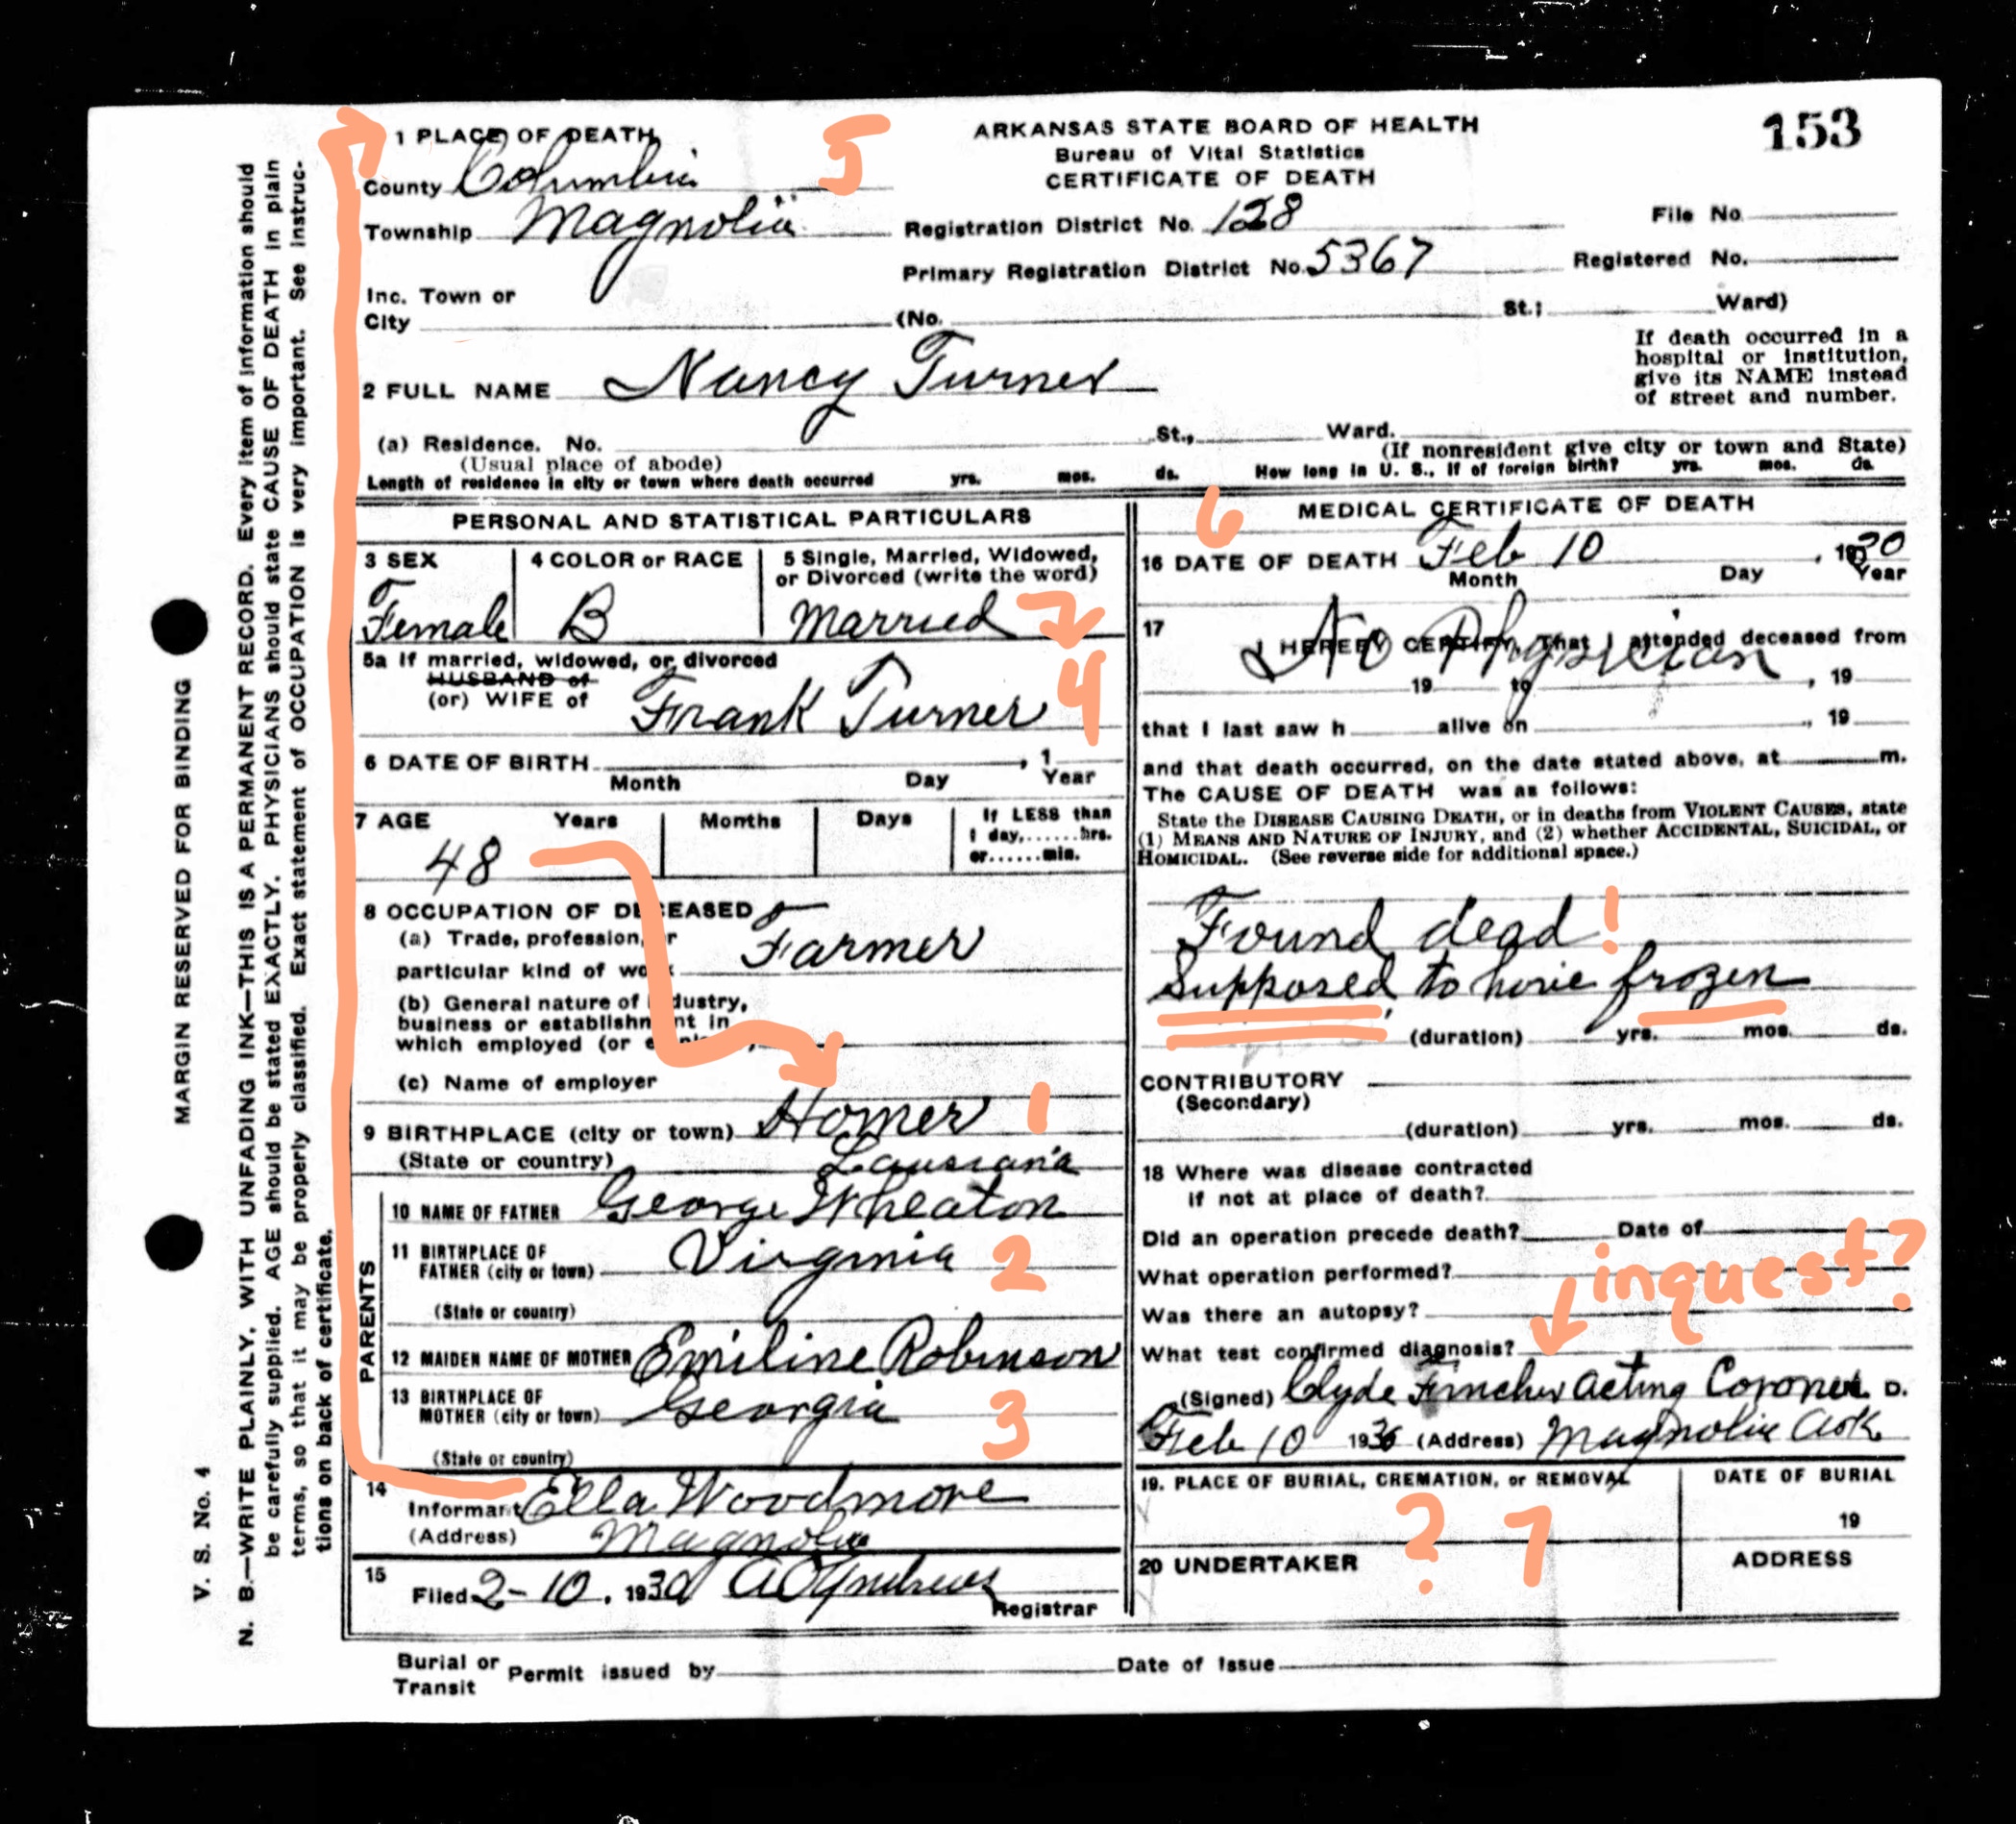 153
1 PLACE OF DEATH
5
County Columbia
Township Magnolia
Inc. Town or
City (No. St.; Ward)
ARKANSAS STATE BOARD OF HEALTH
Bureau of Vital Statistics
CERTIFICATE OF DEATH
Registration District No. 128
File No.
Primary Registration District No. 5367
Registered No.
If death occurred in a
hospital or institution,
give its NAME instead
of street and number.
2 FULL NAME Nancy Turner
(a) Residence. No. St., Ward.
(Usual place of abode)
(If nonresident give city or town and State)
Length of residence in city or town where death occurred yrs. mos. ds. How long in U. S., if of foreign birth? yrs. mos. ds.
PERSONAL AND STATISTICAL PARTICULARS
3 SEX
Female
4 COLOR or RACE
B
5 Single, Married, Widowed,
or Divorced (write the word)
Married
5a If married, widowed, or divorced
HUSBAND of
(or) WIFE of Frank Turner
4
6 DATE OF BIRTH , 1
Month Day Year
7 AGE Years Months Days If LESS than
1 day,.......hrs.
or......min.
48
8 OCCUPATION OF DECEASED
(a) Trade, profession, or
particular kind of work Farmer
(b) General nature of industry,
business or establishment in
which employed (or
(c) Name of employer
9 BIRTHPLACE (city or town) Homer 1
(State or country) Lousiana
PARENTS
10 NAME OF FATHER George Wheaton
11 BIRTHPLACE OF
FATHER (city or town) Virginia 2
(State or country)
12 MAIDEN NAME OF MOTHER Emiline Robinson
13 BIRTHPLACE OF
MOTHER (city or town) Georgia 3
(State or country)
14
Informant Ella Woodmore
(Address) Magnolia
15
Filed 2-10, 1930 A O Andrews
Registrar
6
MEDICAL CERTIFICATE OF DEATH
16 DATE OF DEATH Feb 10 , 1930
Month Day Year
17
I HEREBY CERTIFY, That I attended deceased from
No Physician
19 to , 19
that I last saw h alive on , 19
and that death occurred, on the date stated above, at m.
The CAUSE OF DEATH was as follows:
State the DISEASE CAUSING DEATH, or in deaths from VIOLENT CAUSES, state
(1) MEANS AND NATURE OF INJURY, and (2) whether ACCIDENTAL, SUICIDAL, or
HOMICIDAL. (See reverse side for additional space.)
Found dead !
Supposed to have frozen
(duration) yrs. mos. ds.
CONTRIBUTORY
(Secondary)
(duration) yrs. mos. ds.
18 Where was disease contracted
if not at place of death?
Did an operation precede death? Date of
What operation performed?
inquest?
Was there an autopsy?
What test confirmed diagnosis?
(Signed) Clyde Fincher Acting Coroner D.
Feb 10 1930 (Address) Magnolia Ark
19. PLACE OF BURIAL, CREMATION, or REMOVAL
DATE OF BURIAL
19
? 7
20 UNDERTAKER
ADDRESS
Burial or
Transit Permit issued by Date of Issue
MARGIN RESERVED FOR BINDING
V. S. No. 4
N. B.—WRITE PLAINLY, WITH UNFADING INK—THIS IS A PERMANENT RECORD. Every item of information should
be carefully supplied. AGE should be stated EXACTLY. PHYSICIANS should state CAUSE OF DEATH in plain
terms, so that it may be properly classified. Exact statement of OCCUPATION is very important. See instruc-
tions on back of certificate.